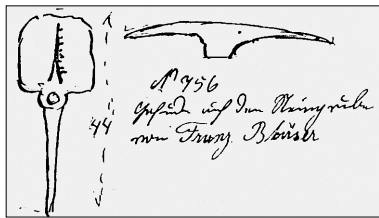 44
N 756
gefunden auf den Steingrube
von Franz Bläser